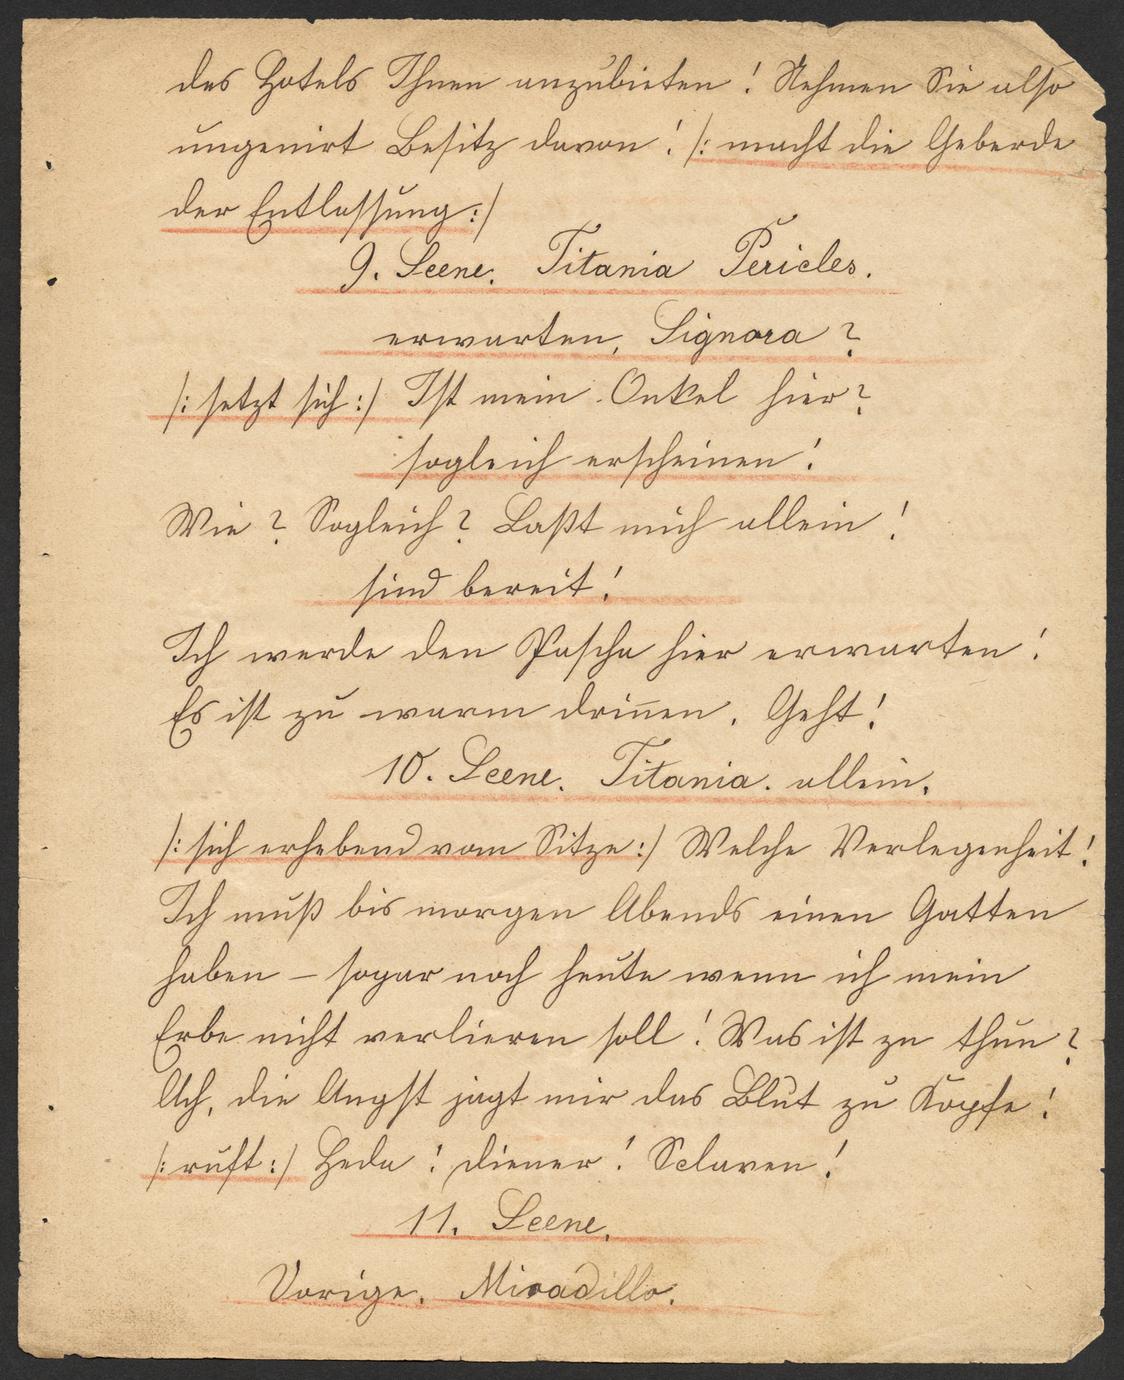 des Hotels Ihnen anzubieten! Nehmen Sie also
ungenirt Besitz davon! /: macht die Geberde
der Entlassung :/
9. Scene. Titania Pericles.
erwarten, Signora?
/: setzt sich :/ Ist mein Onkel hier?
sogleich erscheinen!
Wie? Sogleich? Laßt mich allein!
sind bereit!
Ich werde den Pascha hier erwarten!
Es ist zu warm drin̄en. Geht!
10. Scene. Titania. allein.
/: sich erhebend vom Sitze :/ Welche Verlegenheit!
Ich muß bis morgen Abends einen Gatten
haben – sogar noch heute wenn ich mein
Erbe nicht verlieren soll! Was ist zu thun?
Ach, die Angst jagt mir das Blut zu Kopfe!
/: ruft :/ Heda! Diener! Sclaven!
11. Scene.
Vorige. Miradillo.